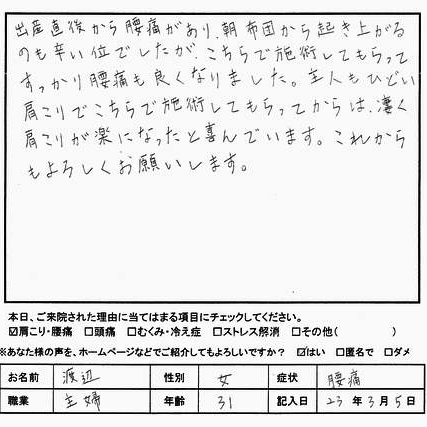 出産直後から腰痛があり、朝布団から起き上がる
のも辛い位でしたが、こちらで施術してもらって
すっかり腰痛も良くなりました。主人もひどい
肩こりでこちらで施術してもらってからは、凄く
肩こりが楽になったと喜んでいます。これから
もよろしくお願いします。
本日、ご来院された理由に当てはまる項目にチェックしてください。
☑肩こり・腰痛 □頭痛 □むくみ・冷え症 □ストレス解消 □その他( )
※あなた様の声を、ホームページなどでご紹介してもよろしいですか? ☑はい □匿名で □ダメ
お名前 渡辺 性別 女 症状 腰痛
職業 主婦 年齢 31 記入日 23年3月5日